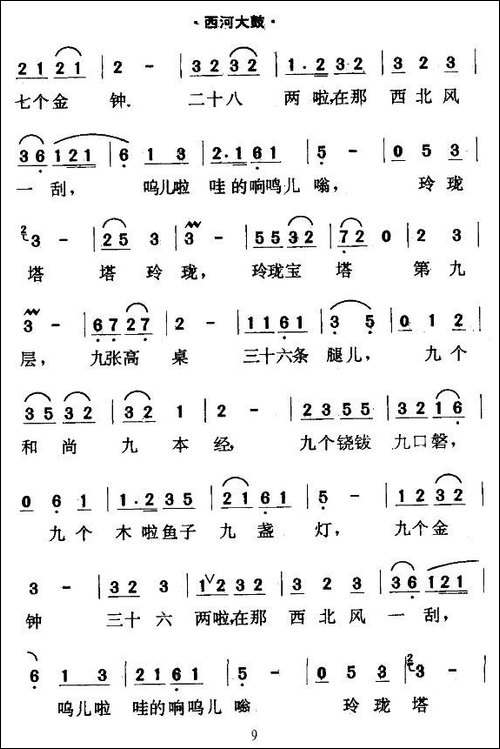 ·西河大鼓·
2 1 2 1 | 2 - | 3 2 3 2 | 1·2 3 2 | 3 2 3 |
七个金 钟. 二十八 两啦,在那 西北风
3 6 1 2 1 | 6 1 3 | 2·1 6 1 | 5 - | 0 5 3 |
一 刮, 呜儿啦 哇的响呜儿 嗡, 玲珑
3 - | 2 5 3 | 3 - | 5 5 3 2 | 7 2 0 | 2 3 |
塔 塔玲珑, 玲珑宝 塔 第九
3 - | 6 7 2 7 | 2 - | 1 1 6 1 | 3 5 | 0 1 2 |
层, 九张高 桌 三十六条 腿儿, 九个
3 5 3 2 | 3 2 1 | 2 - | 2 3 5 5 | 3 2 1 6 |
和尚 九本 经, 九个铙钹 九口磬,
0 6 1 | 1·2 3 5 | 2 1 6 1 | 5 - | 1 2 3 2 |
九个 木啦鱼子 九盏 灯, 九个金
3 - | 3 2 3 | 1 2 3 2 | 3 2 3 | 3 6 1 2 1 |
钟 三十六 两啦,在那 西北风 一刮,
6 1 3 | 2 1 6 1 | 5 - | 0 5 3 | 3 - |
呜儿啦 哇的响呜儿 嗡 玲珑 塔
9